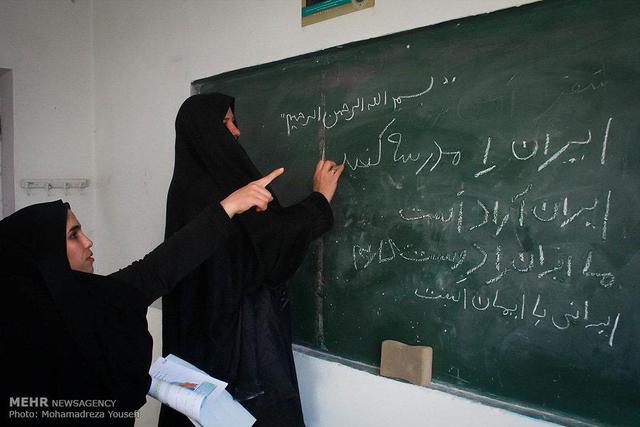 "بسم الله الرحمن الرحیم"
ایران را مدرسه کنند
ایران آزاد است
ما ایران را دوست داریم
ایرانی با ایمان است
MEHR NEWSAGENCY
Photo: Mohamadreza Yousefi